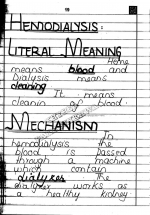 HEMODIALYSIS:
LITERAL MEANING
Heme
means blood and
Dialysis means
cleaning
It means
cleanin of blood.
MECHANISM
In
hemodialysis the
blood is passed
through a machine
which contain
dialyzer. The
dialyzer works as
a healthy kidney